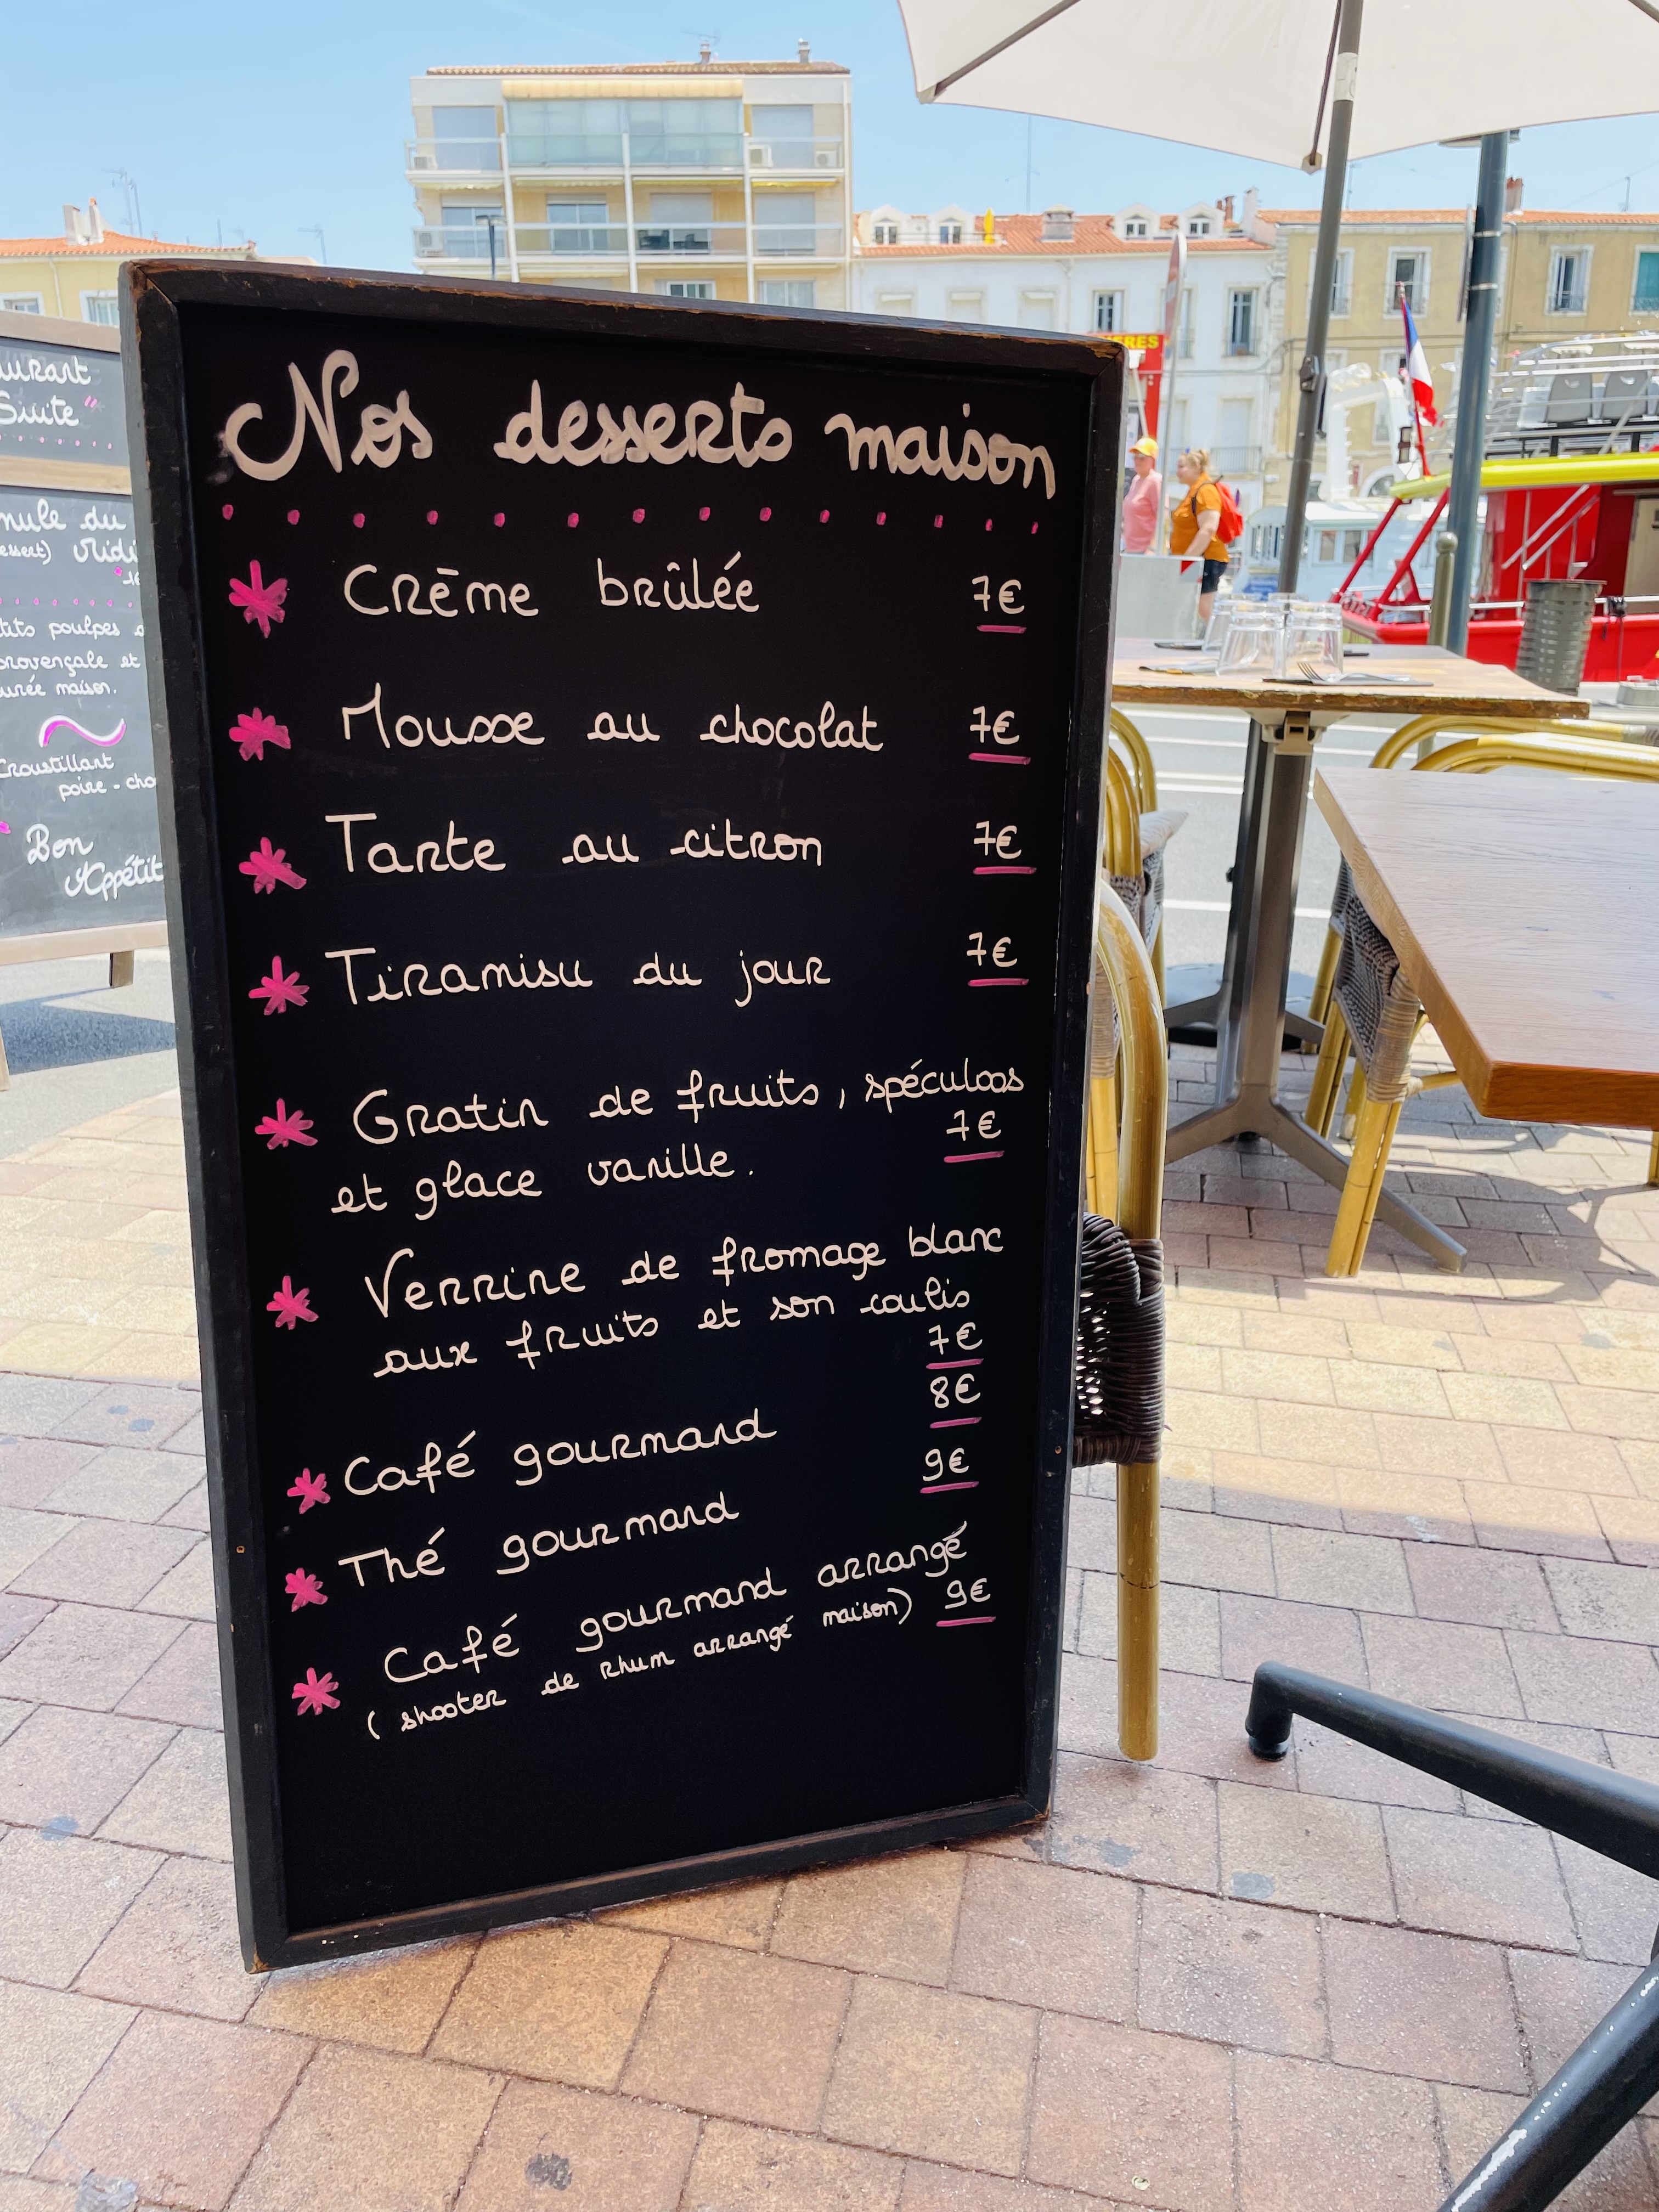 Nos desserts maison
Crème brûlée 7€
Mousse au chocolat 7€
Tarte au citron 7€
Tiramisu du jour 7€
Gratin de fruits, spéculoos
et glace vanille. 7€
Verrine de fromage blanc
aux fruits et son coulis
7€
Café gourmand 8€
Thé gourmand 9€
Café gourmand arrangé
(shooter de rhum arrangé maison) 9€
urant
Suite"
mule du
essert) Midi
tits poulpes
provençale et
urée maison.
Croustillant
poire - cho
Bon
Appétit
ERES